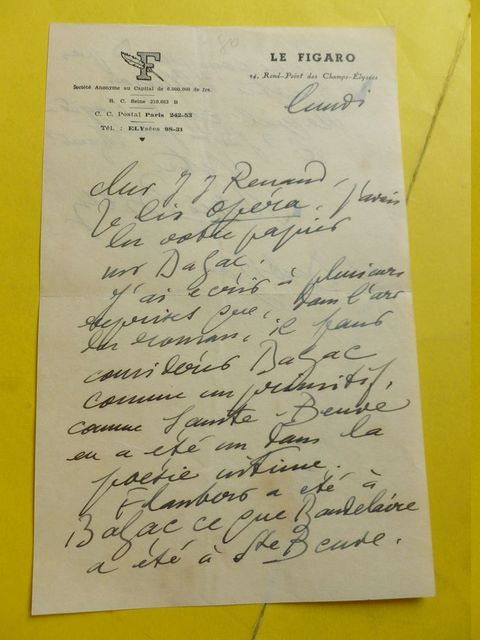 F
80
LE FIGARO
14, Rond-Point des Champs-Élysées
Société Anonyme au Capital de 6.000.000 de frs.
R. C. Seine 210.663 B
C. C. Postal Paris 242-53
Tél. : ELYsées 98-31
lundi
cher J J Renaud,
Je lis opéra. J'avais
lu votre papier
sur Balzac.
J'ai écrit à plusieurs
reprises que, dans l'art
du roman, il faut
considérer Balzac
comme un primitif,
comme Sainte-Beuve
en a été un dans la
poésie intime.
Flaubert a été à
Balzac ce que Baudelaire
a été à Ste Beuve.